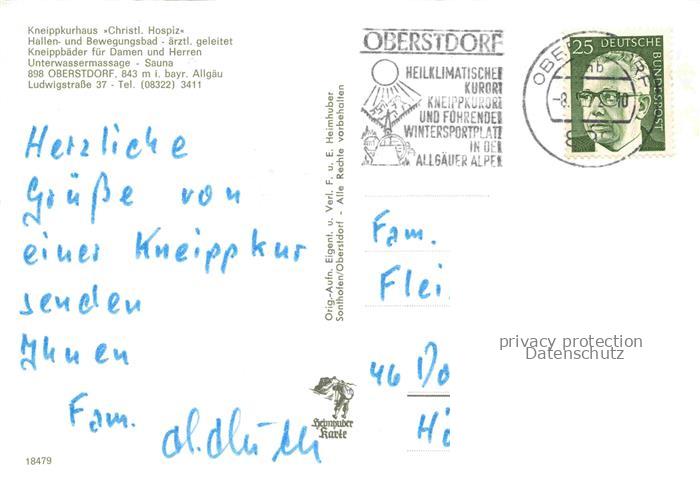 Kneippkurhaus »Christl. Hospiz«
Hallen- und Bewegungsbad - ärztl. geleitet
Kneippbäder für Damen und Herren
Unterwassermassage - Sauna
898 OBERSTDORF, 843 m i. bayr. Allgäu
Ludwigstraße 37 - Tel. (08322) 3411
Herzliche
Grüße von
einer Kneippkur
senden
Ihnen
Fam.
18479
Orig.-Aufn. Eigent. u. Verl. F. u. E. Heimhuber
Sonthofen/Oberstdorf - Alle Rechte vorbehalten
Heimhuber
Karte
OBERSTDORF
HEILKLIMATISCHER
KURORT
KNEIPPKURORT
UND FÜHRENDER
WINTERSPORTPLATZ
IN DEN
ALLGÄUER ALPEN
25 DEUTSCHE
BUNDESPOST
Fam.
Flei
46 Do
Hi
privacy protection
Datenschutz